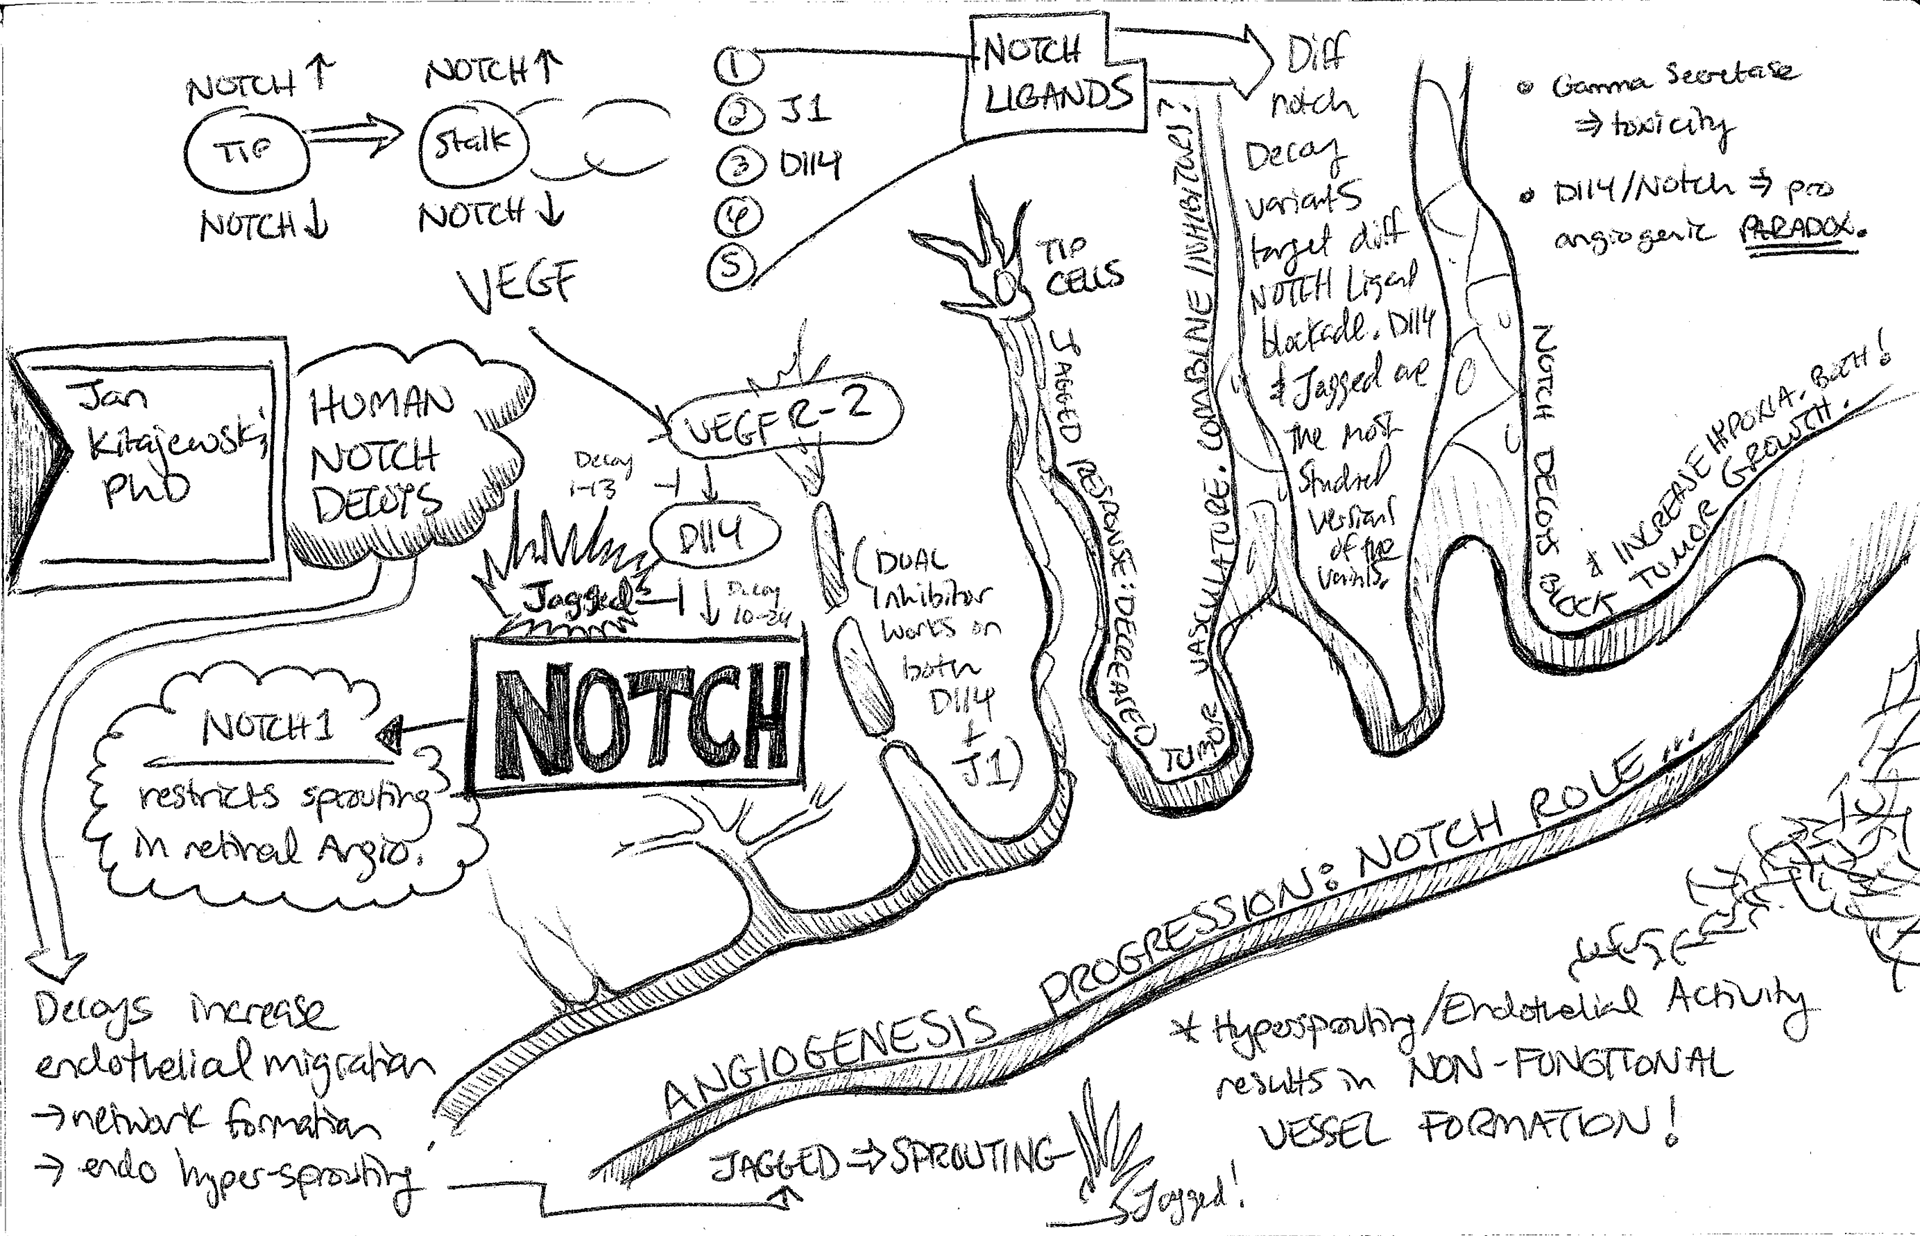 NOTCH ↑
TIP
NOTCH ↓
NOTCH ↑
Stalk
NOTCH ↓
1
2 J1
3 Dll4
4
5
NOTCH
LIGANDS
Diff
notch
Decoy
variants
target diff
NOTCH Ligand
blockade. Dll4
& Jagged are
the most
Studied
versions
of the
• Gamma Secretase
⇒ toxicity
• Dll4/Notch ⇒ pro
angiogenic PARADOX.
VEGF
VEGFR-2
Decoy
1-13
Dll4
Jagged
Decoy
10-24
NOTCH
Jan
Kitajewski,
PhD
HUMAN
NOTCH
DECOYS
NOTCH1
restricts sprouting
in retinal Angio.
(DUAL
Inhibitor
works on
both
Dll4
+
J1)
TIP
CELLS
JAGGED RESPONSE: DECREASED TUMOR VASCULATURE. COMBINE INHIBITORS?
NOTCH DECOYS BLOCK TUMOR GROWTH.
& INCREASE HYPOXIA. BOTH!
ANGIOGENESIS PROGRESSION: NOTCH ROLE...
Decoys increase
endothelial migration
→ network formation
→ endo hyper-sprouting
JAGGED ⇒ SPROUTING
Jagged!
* Hypersprouting/Endothelial Activity
results in NON-FUNCTIONAL
VESSEL FORMATION!